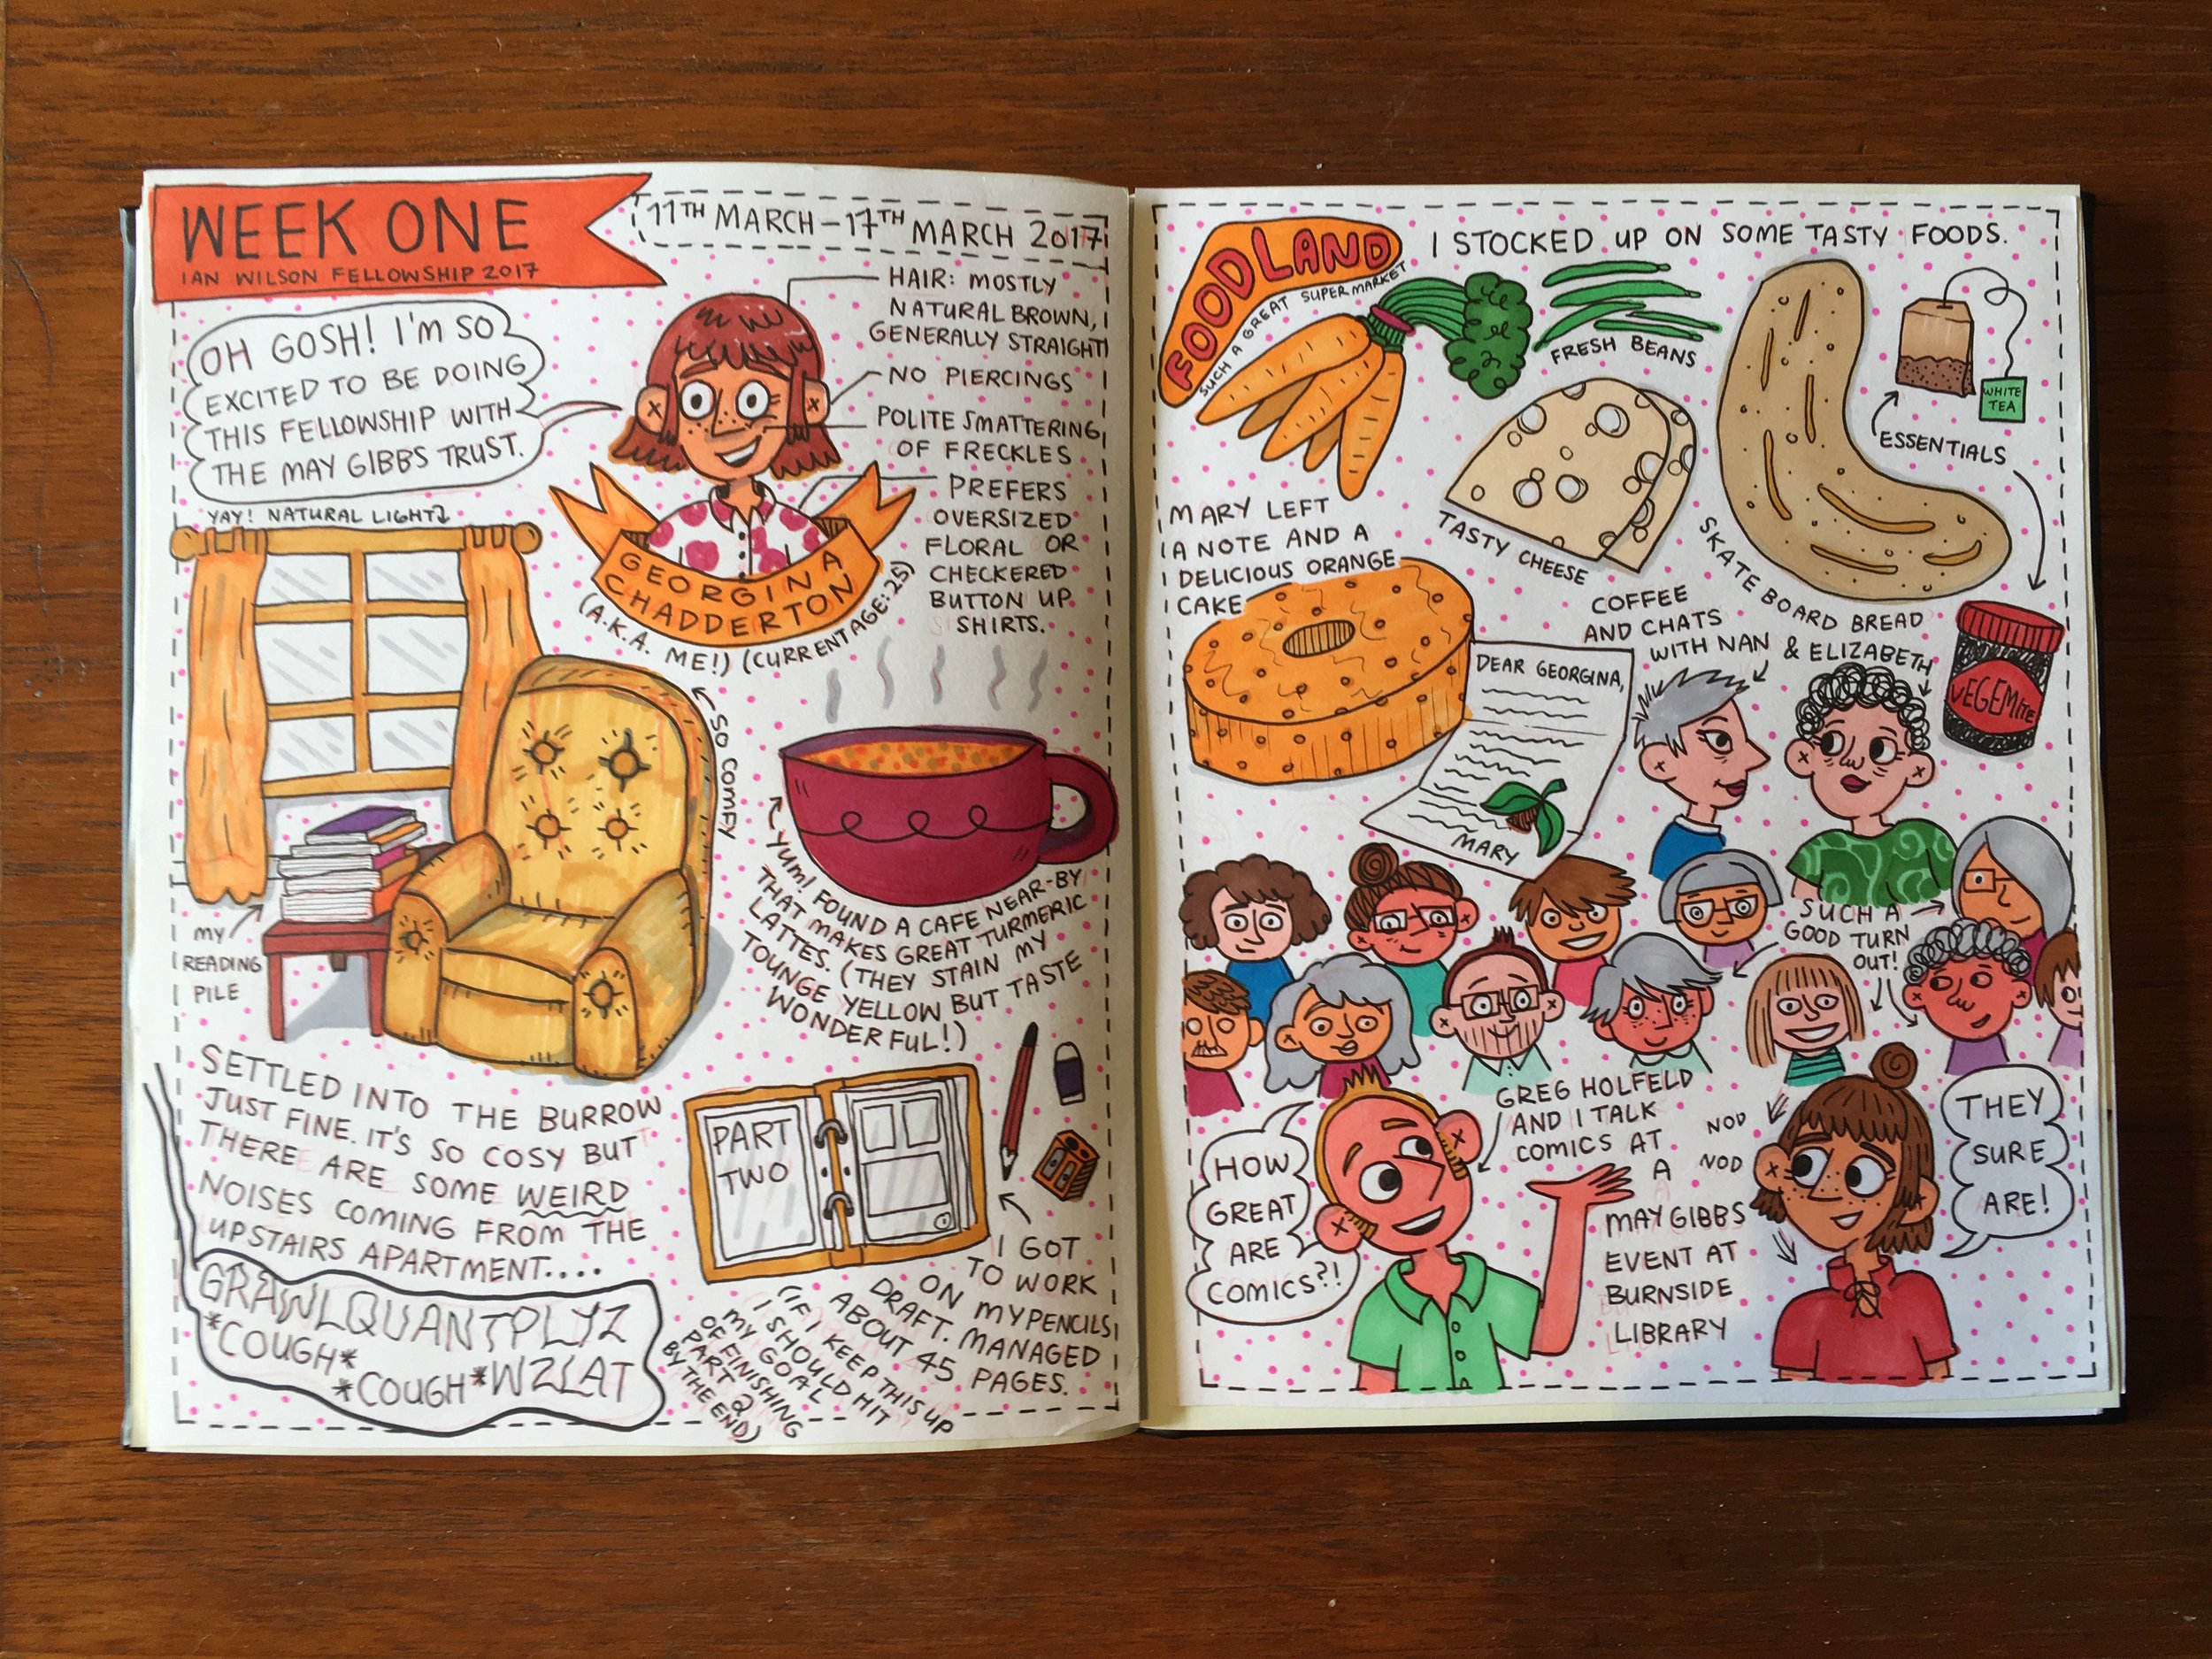 WEEK ONE
IAN WILSON FELLOWSHIP 2017
11TH MARCH-17TH MARCH 2017
OH GOSH! I'M SO
EXCITED TO BE DOING
THIS FELLOWSHIP WITH
THE MAY GIBBS TRUST.
HAIR: MOSTLY
NATURAL BROWN,
GENERALLY STRAIGHT
NO PIERCINGS
POLITE SMATTERING
OF FRECKLES
PREFERS
OVERSIZED
FLORAL OR
CHECKERED
BUTTON UP
SHIRTS.
GEORGINA
CHADDERTON
(A.K.A. ME!) (CURRENT AGE: 25)
YAY! NATURAL LIGHT
SO COMFY
MY
READING
PILE
YUM! FOUND A CAFE NEAR-BY
THAT MAKES GREAT TURMERIC
LATTES. (THEY STAIN MY
TOUNGE YELLOW BUT TASTE
WONDERFUL!)
SETTLED INTO THE BURROW
JUST FINE. IT'S SO COSY BUT
THERE ARE SOME WEIRD
NOISES COMING FROM THE
UPSTAIRS APARTMENT....
GRAWLQUANTPLYZ
*COUGH*
*COUGH*WZLAT
PART
TWO
I GOT
TO WORK
ON MY PENCILS
DRAFT. MANAGED
ABOUT 45 PAGES.
(IF I KEEP THIS UP
I SHOULD HIT
MY GOAL
OF FINISHING
PART 2
BY THE END)
FOODLAND
SUCH A GREAT SUPERMARKET
I STOCKED UP ON SOME TASTY FOODS.
FRESH BEANS
WHITE
TEA
ESSENTIALS
TASTY CHEESE
SKATEBOARD BREAD
VEGEMITE
MARY LEFT
A NOTE AND A
DELICIOUS ORANGE
CAKE
DEAR GEORGINA,
MARY
COFFEE
AND CHATS
WITH NAN & ELIZABETH
SUCH A
GOOD TURN
OUT!
GREG HOLFELD
AND I TALK
COMICS AT
A
MAY GIBBS
EVENT AT
BURNSIDE
LIBRARY
HOW
GREAT
ARE
COMICS?!
NOD
NOD
THEY
SURE
ARE!